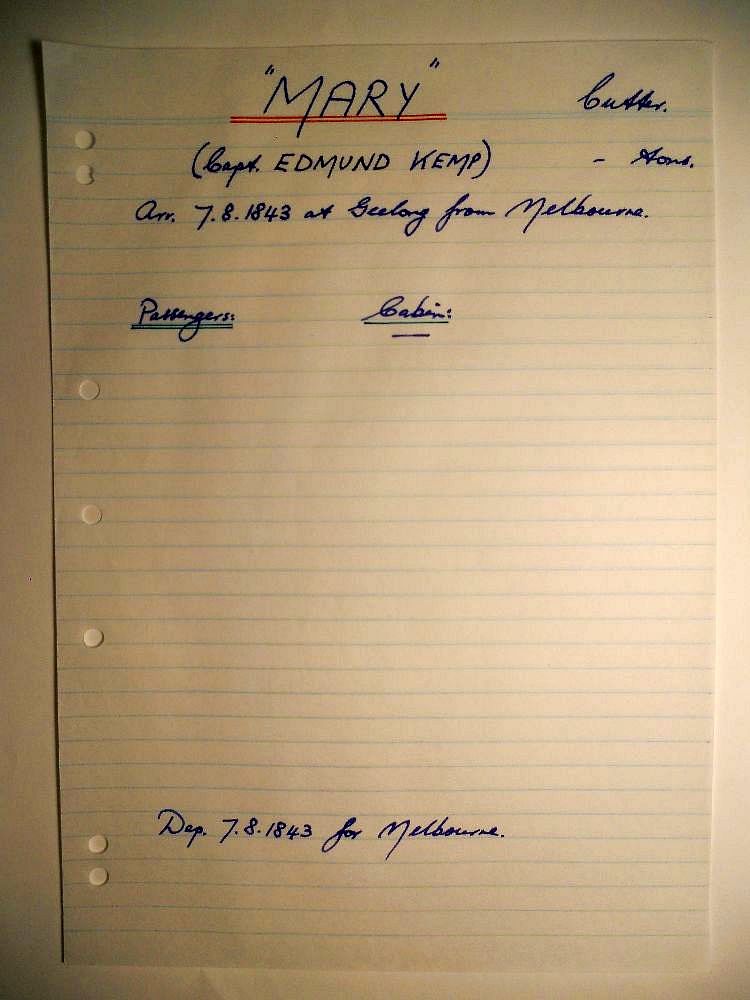 "MARY" Cutter.
(Capt. EDMUND KEMP) - tons.
Arr. 7.8.1843 at Geelong from Melbourne.
Passengers: Cabin:
—
Dep. 7.8.1843 for Melbourne.